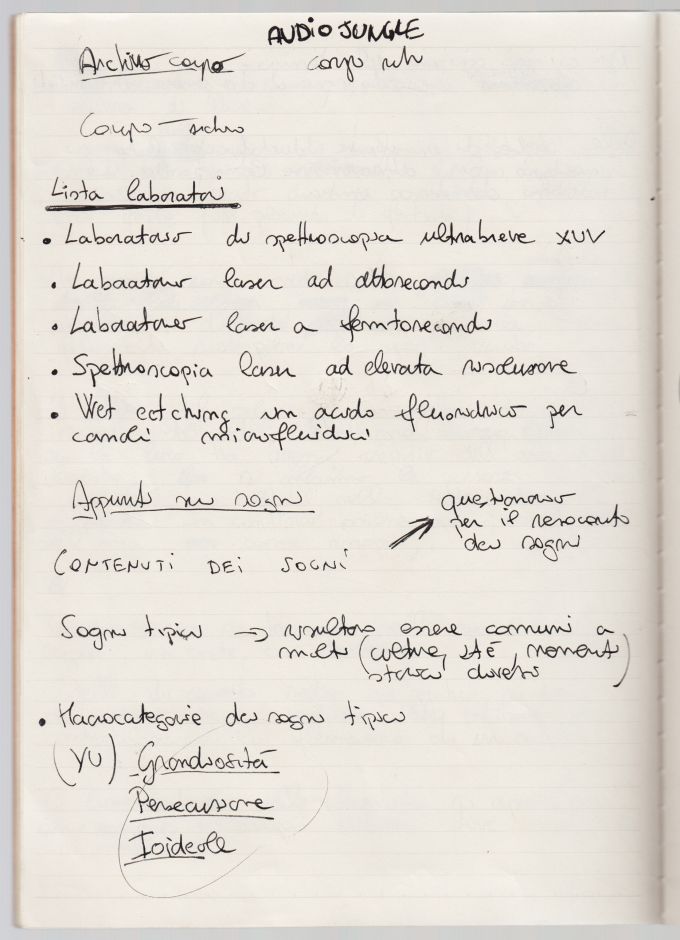 AUDIO JUNGLE
Archivio corpo corpo
Corpo - archivio
Lista laboratori
• Laboratorio di spettroscopia ultrabreve XUV
• Laboratorio laser ad attosecondi
• Laboratorio laser a femtosecondi
• Spettroscopia laser ad elevata risoluzione
• Wet ectching in acido fluoridrico per
canali microfluidici
Appunti su sogni
questionario
per il resoconto
dei sogni
CONTENUTI DEI SOGNI
Sogni tipici → risultano essere comuni a
molti (culture, età, momenti
storici diversi)
• Macrocategorie dei sogni tipici
(YU) Grandiosità
Persecuzione
Ioideale